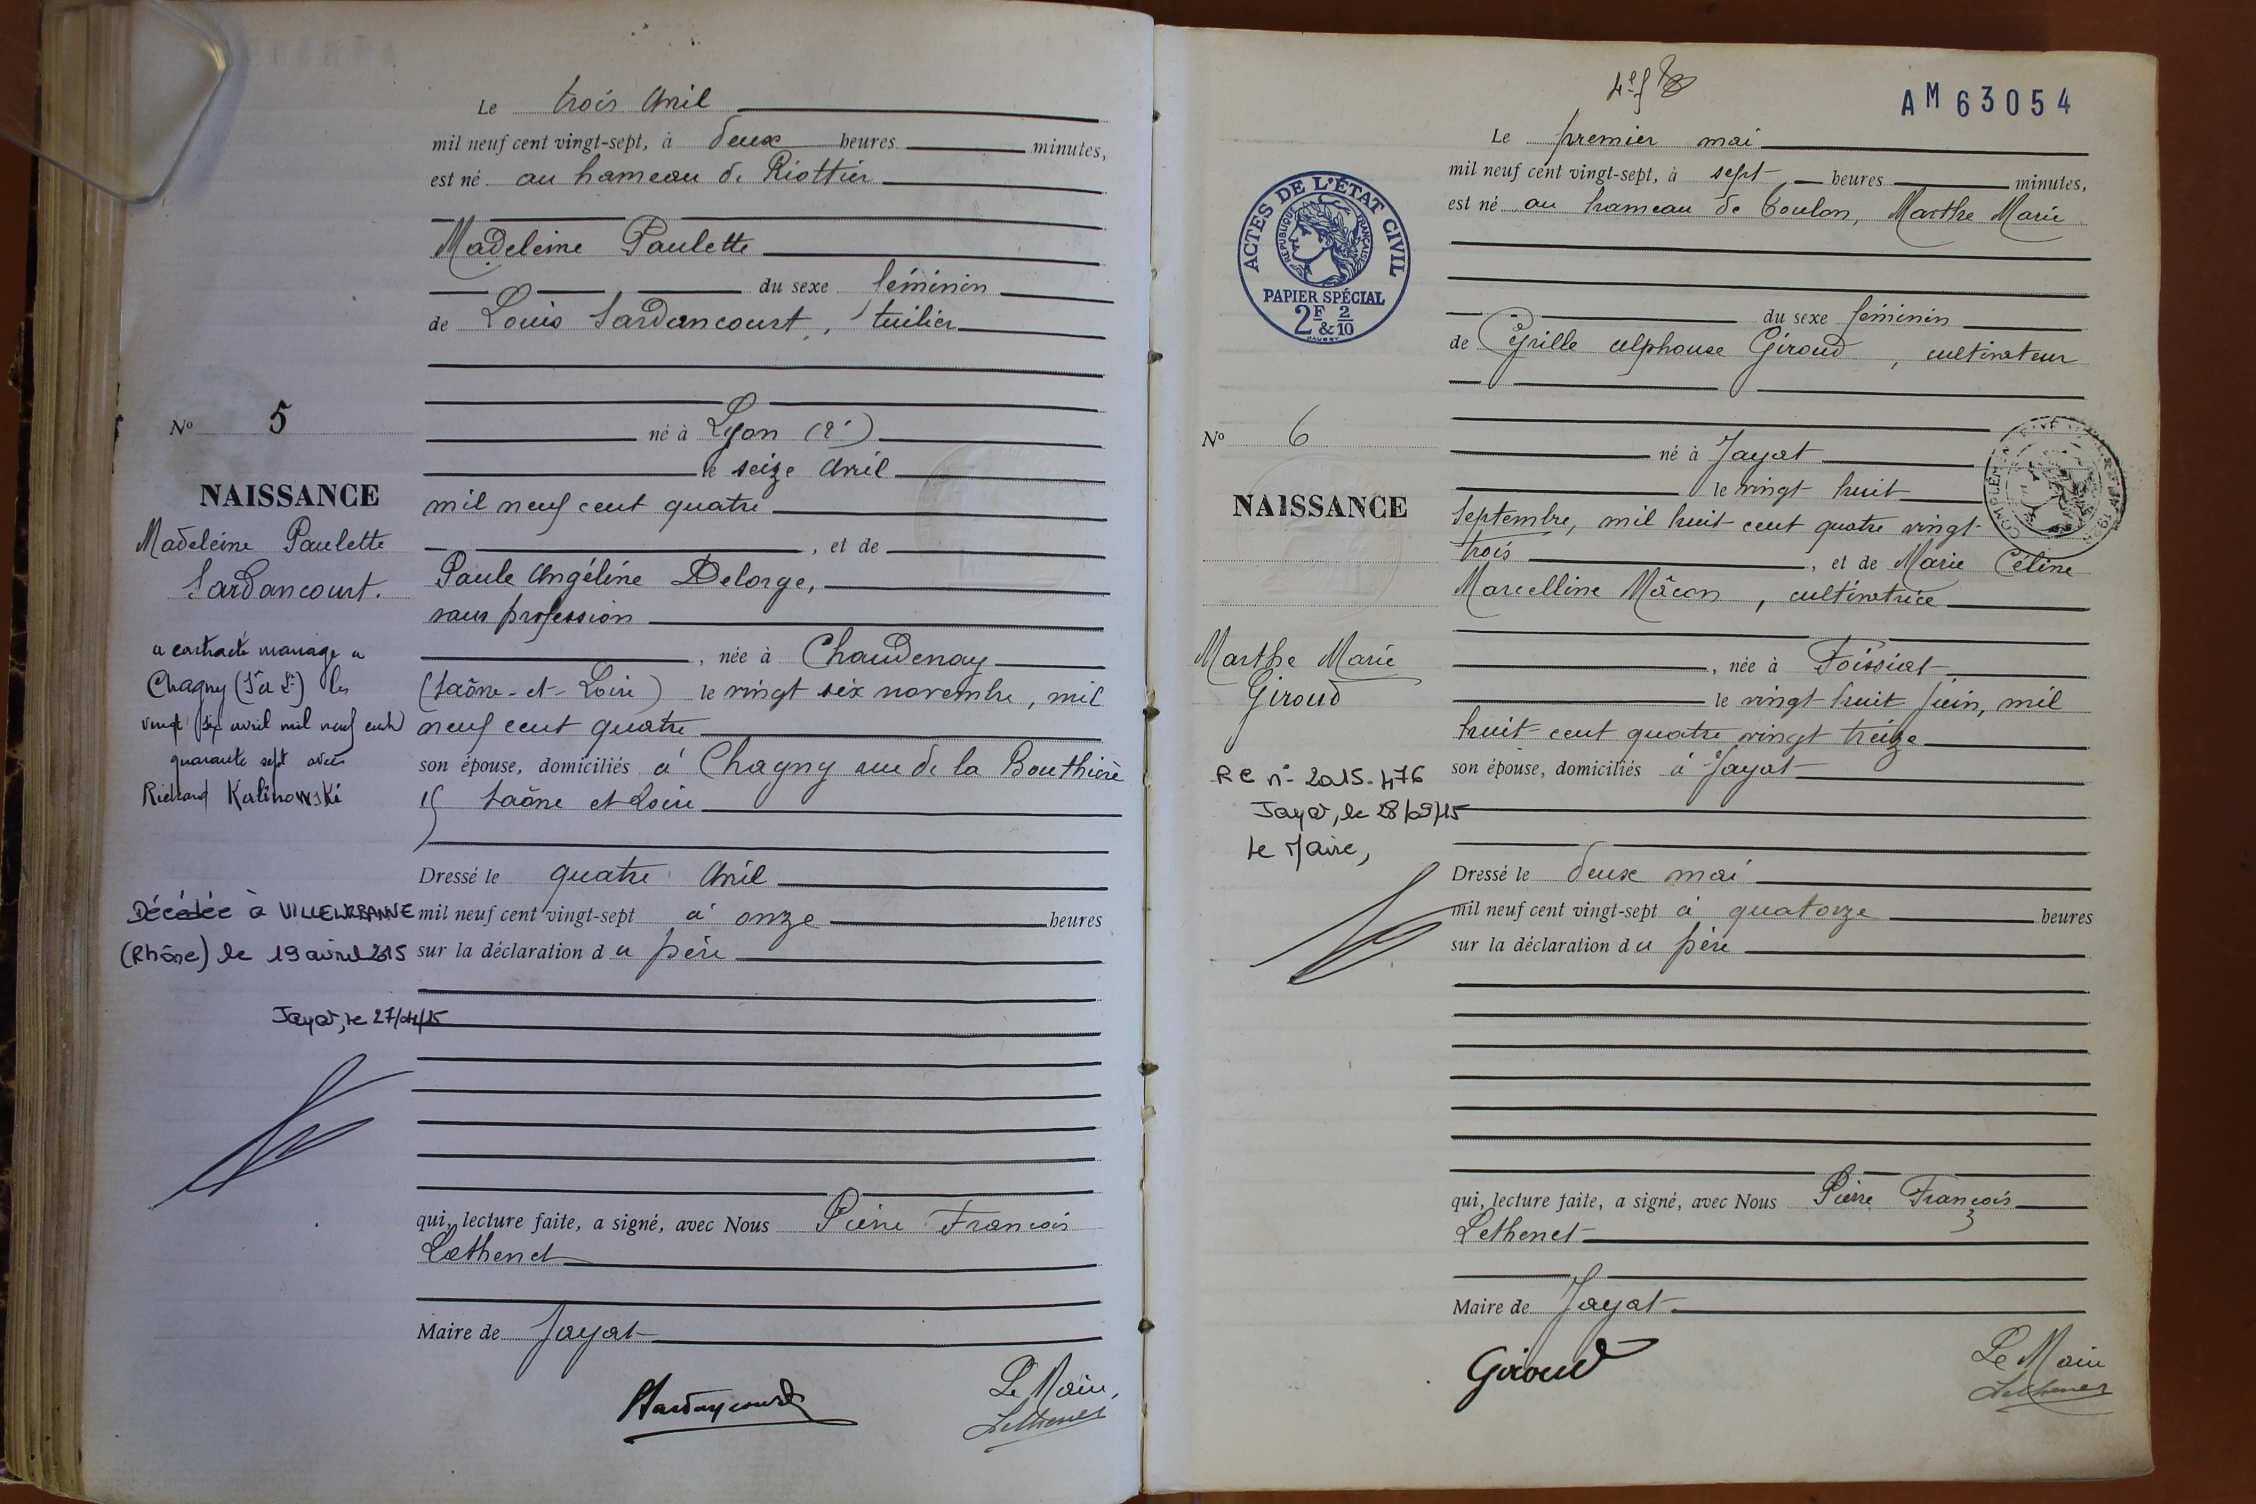 Le trois Avril
mil neuf cent vingt-sept, à deux heures minutes,
est né au hameau de Riottier
Madeleine Paulette
du sexe féminin
de Louis Sardancourt, tuilier
né à Lyon (2e)
le seize Avril
mil neuf cent quatre
, et de
Paule Angéline Delorge,
sans profession
, née à Chaudenay
(Saône-et-Loire) le vingt six novembre, mil
neuf cent quatre
son épouse, domiciliés à Chagny rue de la Bouthière
Saône et Loire
Dressé le quatre Avril
mil neuf cent vingt-sept à onze heures
sur la déclaration du père
qui, lecture faite, a signé, avec Nous Pierre François
Lethenet
Maire de Jayat
Sardancourt
Le Maire,
Lethenet
No 5
NAISSANCE
Madeleine Paulette
Sardancourt.
a contracté mariage a
Chagny (S et L) le
vingt six avril mil neuf cent
quarante sept avec
Richard Kalinowski
Décédée à VILLEURBANNE
(Rhône) le 19 avril 2015
Jayat, le 27/04/15
AM63054
Le premier mai
mil neuf cent vingt-sept, à sept heures minutes,
est né au hameau de Coulon, Marthe Marie
du sexe féminin
de Cyrille Alphonse Giroud, cultivateur
né à Jayat
le vingt huit
septembre, mil huit cent quatre vingt
trois , et de Marie Céline
Marcelline Mâcon, cultivatrice
, née à Foissiat
le vingt huit juin, mil
huit cent quatre vingt treize
son épouse, domiciliés à Jayat
Dressé le deux mai
mil neuf cent vingt-sept à quatorze heures
sur la déclaration du père
qui, lecture faite, a signé, avec Nous Pierre François
Lethenet
Maire de Jayat
Giroud
Le Maire
Lethenet
ACTES DE L'ÉTAT CIVIL
RÉPUBLIQUE FRANÇAISE
PAPIER SPÉCIAL
2F & 2/10
No 6
NAISSANCE
Marthe Marie
Giroud
RC n° 2015-476
Jayat, le 28/09/15
Le Maire,